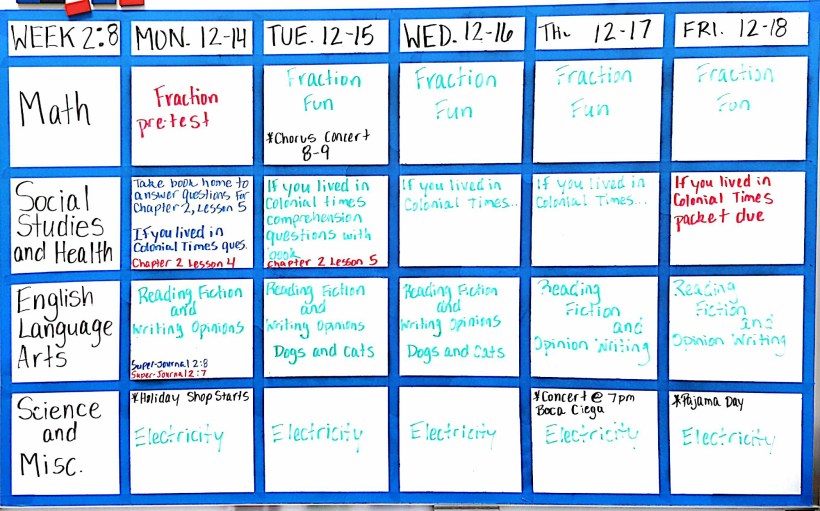 WEEK 2:8
MON. 12-14
TUE. 12-15
WED. 12-16
THU 12-17
FRI. 12-18
Math
Fraction
pretest
Fraction
Fun
*Chorus Concert
8-9
Fraction
Fun
Fraction
Fun
Fraction
Fun
Social
Studies
and Health
Take book home to
answer questions for
Chapter 2, Lesson 5
If you lived in
Colonial Times ques.
Chapter 2 Lesson 4
If you lived in
Colonial times
comprehension
questions with
book
Chapter 2 Lesson 5
If you lived in
Colonial Times...
If you lived in
Colonial Times...
If you lived in
Colonial Times
packet due
English
Language
Arts
Reading Fiction
and
Writing Opinions
Super-Journal 2:8
Super-Journal 2:7
Reading Fiction
and
Writing Opinions
Dogs and Cats
Reading Fiction
and
Writing Opinions
Dogs and Cats
Reading
Fiction
and
Opinion Writing
Reading
Fiction
and
Opinion Writing
Science
and
Misc.
*Holiday Shop Starts
Electricity
Electricity
Electricity
*Concert @ 7pm
Boca Ciega
Electricity
*Pajama Day
Electricity